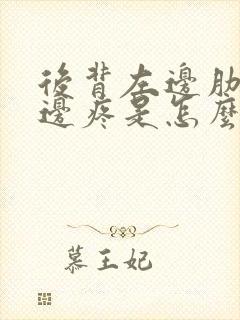 後背左邊肋
邊疼是怎麼
慕王妃